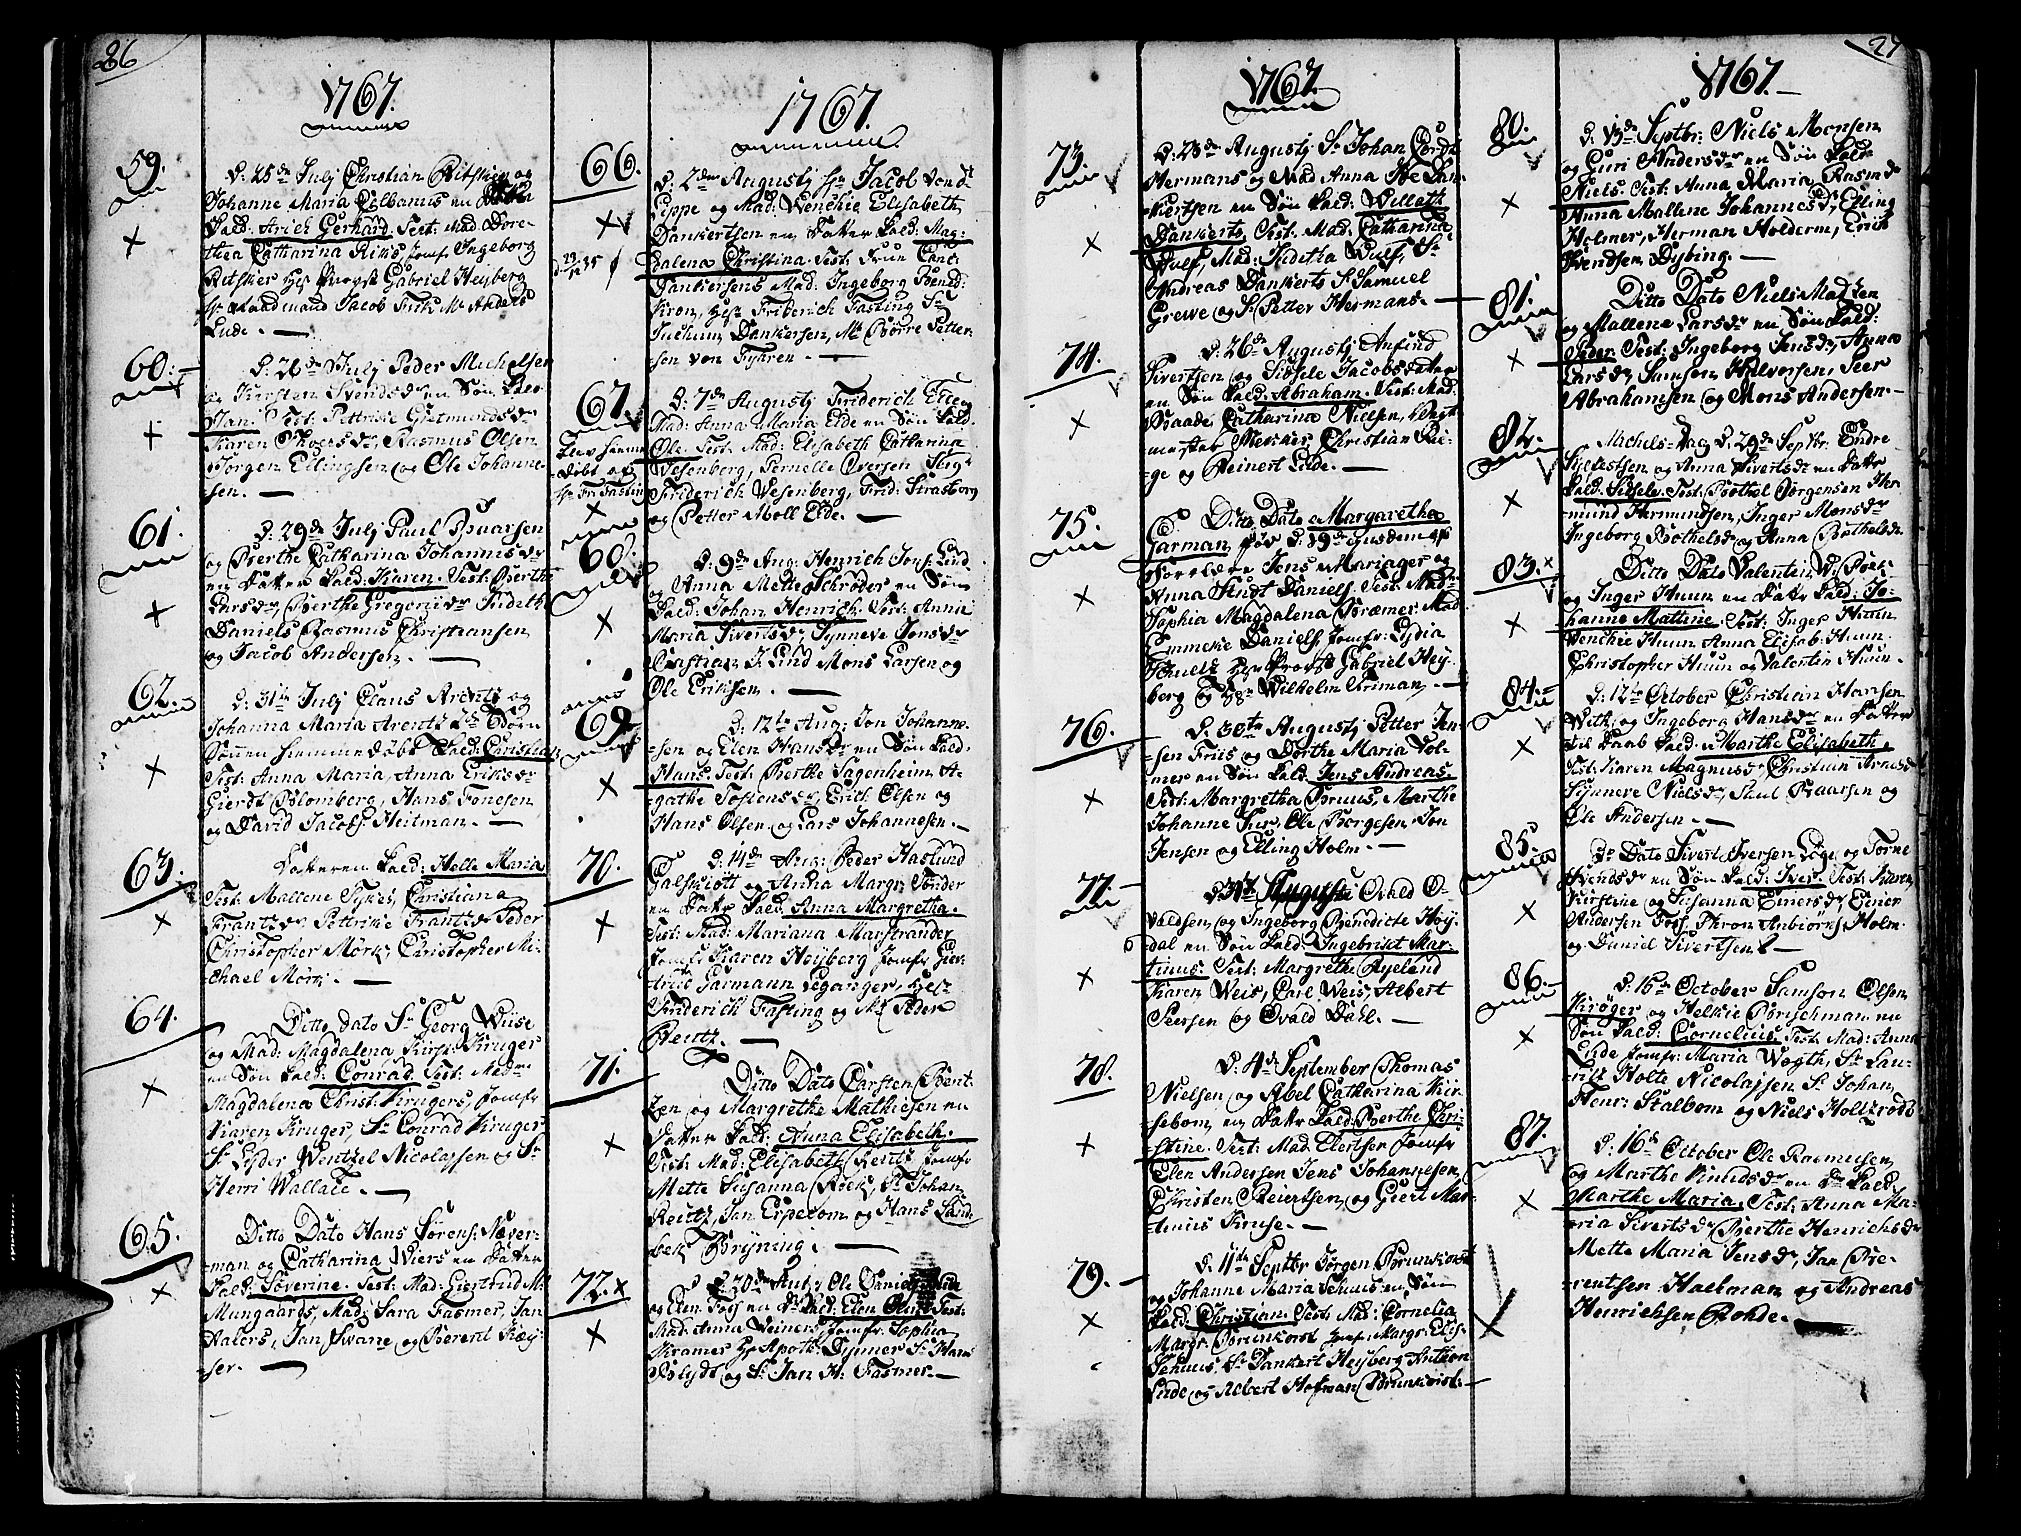 26
1767.
59.
D: 25de Julij Christian Ritskier og
Johanne Maria
Kald: Arich Gerhard Test: Mad Dore-
thea Catharina Jomfr Ingeborg
Ritskier Hr Provst Gabriel Heyberg
Hr Raadmand Jacob Frik Mr Anders
Lude.
60.
Julij Peder Michelsen
og Kirsten Svends dr en Søn Kald
Jan. Test: Pettrike Gietmunds dr
Karen Rasmus Olsen
Jørgen Ellingsen og Ole Johanne-
sen.
61.
D: 29de Julij Paul
og Berthe Catharina Johannis dr
en Datter Kald: Karen. Test: Berthe
Lars dr, Berthe Gregorij dr Judeth
Daniels Rasmus Christiansen
og Jacob Andersen.
62.
D: 31te Julij Claus Arentz og
Johanna Maria Arentz
Sønen hiemmedøbt Kald: Christian
Test: Anna Maria, Anna Eriks dr
Gierdt Blomberg, Hans Tonesen
og David Jacobs: Heitman.
63.
Datteren Kald: Helle Maria
Test: Mallene Christiana
Frantz dr Pettrike Frantz dr Peder
Christopher Mørk, Christopher Mi-
chael Mørk.
64.
Ditto dato Sr Georg Wiise
og Mad: Magdalena Kirst: Kruger
en Søn Kald: Conrad Test: Madme
Magdalena Christ: Krugers, Jomfr
Karen Kruger, Sr Conrad Kruger
Sr Lyder Wentzel Nicolajsen og Sr
Herri Wallace.
65.
Ditto Dato Hans Sørens: Næver-
man og Catharina Wiers en Datter
Kald: Søverine. Test: Mad: Giertrud M.
Mungaards, Mad: Sara Fasmer, Jan
Valers, Jan Svane og Berent Kæy-
ser.
1767.
66.
D: 2den Augustj Hr Jacob Vondt
Lippe og Mad: Wenche Elisabeth
Dankertsen en Datter Kald: Mag:
dalena Christina. Test: Frue Canc:
Dankersens Mad: Ingeborg
Kron, Hr Friderich Fasting Sr
Juchum Dankersen, Mr Børre Petter-
sen von Fyhren.
67.
D: 7de Augustj Friderich Elle
Mad: Anna Maria Elde en Søn Kald:
Ole. Test: Mad: Elisabeth Catharina
Wesenberg, Pernelle Oversen Hr
Friderich Wesenberg, Frid: Strasborg
og Petter Moll Elde.
hiemme
døbt af
Hr Fr: Fasting
68.
D: 9de Aug: Henrich Jons: Lind
og Anna Mette Schrøder en Søn
Kald: Johan Henrich. Test: Anna
Maria Siverts dr, Synneve Jons dr
Castian J. Lind Mons Larsen og
Ole Eriksen.
69.
D: 12te Aug: Jon Johanne-
sen og Elen Hans dr en Søn Kald:
Hans. Test: Berthe Sagenheim A-
gathe Tostens dr, Erich Olsen og
Hans Olsen og Lars Johannesen.
70.
D: 14de Aug: Peder Haslund
Galskiøtt og Anna Margr: Tønder
en Datter Kald: Anna Margretha.
Test: Mad: Mariana Marstrander
Jomfr Karen Heyberg Jomfr Gier-
trud Garmann Leganger, Hr
Friderich Fasting og Mr Peder
Reutz.
71.
Ditto Dato Carsten Bent-
zen og Margrethe Mathiesen en
Datter Kald: Anna Elisabeth.
Test: Mad: Elisabeth Reutz Jomfr
Mette Susanna Røck, Sr Johan
Reutz, Jan Erpecom og Hans Lande-
bek Bryning.
72.
D: 20de Aug: Ole
og Elen en Dr Kald: Elen Test:
Mad: Anna Weiners Jomfr Sophia
Kramer Hr Apotk: Dijmer Sr Hans
og Sr Jan H: Fasmer.
27
1767.
73.
D: 23de Augustj Sr Johan Cordt
Hermans og Mad Anna Dan-
kertsen en Søn Kald: Willeth
Dankerts. Test: Mad: Catharina
Wulf, Mad: Juditha Wulf, Sr
Andreas Dankerts Sr Samuel
Grewe og Sr Petter Hermans.
74.
D: 26de Augustj Anfind
Sivertsen og Sidsele Jacobsdatter
en Søn Kald: Abraham. Test: Mad:
Baade, Catharina Nielsen,
mester Mercker, Christian Rie-
ge og Reinert Lude.
75.
Ditto Dato Margaretha
Garman, fød D: 19de ejusdem
Forældre Jens Mariager og
Anna Daniels. Test: Madme
Sophia Magdalena Bræmer Mad
Emmeke Daniels, Jomfr: Lydia
Hr Provst Gabriel Hey-
berg og Wilhelm Friman.
76.
D: 30te Augustj Petter Jen-
sen Friis og Dorthe Maria Vol-
mer en Søn Kald: Jens Andreas.
Test: Margretha Bruus, Marthe
Johanne Ole Børgesen, Jon
Jensen og Elling Holm.
77.
D: 31te Augusti Ovald O-
valdsen og Ingeborg Bendicte Hoy-
dal en Søn Kald: Ingebrikt Mar-
tinus: Test: Margrethe Ryeland
Karen Weis, Carl Weis, Albert
Peersen og Ovald Dahl.
78.
D: 4de September Thomas
Nielsen og Abel Catharina Kir-
sebom, en Datter Kald: Berthe Chri-
stine. Test: Mad: Elertsen Jomfr
Elen Andersen Jens Johannesen,
Christen Reiertsen, og Giert Mar-
tinius Kruse.
79.
D: 11te Septbr Jørgen Brunkorst
og Johanne Maria Schuus en Søn
Kald: Christian. Test: Mad: Cornelia
Margr: Brunkorst Jomfr: Margr: Elis:
Schuus Sr Dankert Heyberg Anthon
Lude og Albert Hofman Brunkorst.
1767.
80.
D: 13de Septbr: Niels Monsen
og Guri Anders dr en Søn Kald
Niels. Test: Anna Maria Rasm dr
Anna Mallene Johannes dr, Elling
Holmer, Herman Holderm, Erick
Svendsen Dybing.
81.
Ditto Dato Niels Madsen
og Mallena Lars dr en Søn Kald:
Peder. Test: Ingeborg Jens dr, Anna
Lars dr, Samson Halvorsen, Peer
Abrahamsen og Mons Andersen.
82.
Michels-Dag D: 29de Septbr. Endre
og Anna Siverts dr en Datter
Kald: Sidsele. Test: Bothel Jørgensen Her-
mund Hermundsen, Inger Mons dr
Ingeborg Bothels dr og Anna Bothels dr.
83.
Ditto Dato Valentin W.
og Inger Huun en Datter Kald: Jo-
hanne Malline. Test: Inger Huun
Wenchie Huun Anna Elisab: Huun.
Christopher Huun og Valentin Huun.
84.
D: 12te October Christian Hansen
Weth og Ingeborg Hans dr en Datter
til Daab Kald: Marthe Elisabeth.
Test: Karen Magnus dr, Christian Arnes
Synneve Niels dr, Paul Baarsen og
Ole Andersen.
85.
Do Dato Sivert Iversen Løge og Torne
Svends dr en Søn Kald: Iver. Test: Karen
Kirstine og Susanna Einers dr Einer
Andersen Anbiørns: Holm
og Daniel Sivertsen.
86.
D: 15de October Samson Olsen
Krøger og Helkie Børischman en
Søn Kald: Cornelius. Test: Mad: Anna
Lude Jomfr: Maria Wogth, Sr Lau-
ritz Holte Nicolajsen Sr Johan
Henr: Stalbom og Niels Holtzrode
87.
D: 16de October Ole Rasmussen
og Marthe Knuds dr en Dr Kald
Marthe Maria. Test: Anna Ma-
ria Siverts dr, Berthe Henrichs dr
Mette Maria Jens dr, Jan Be-
rentsen Haelman og Andreas
Henrichsen Rohde.